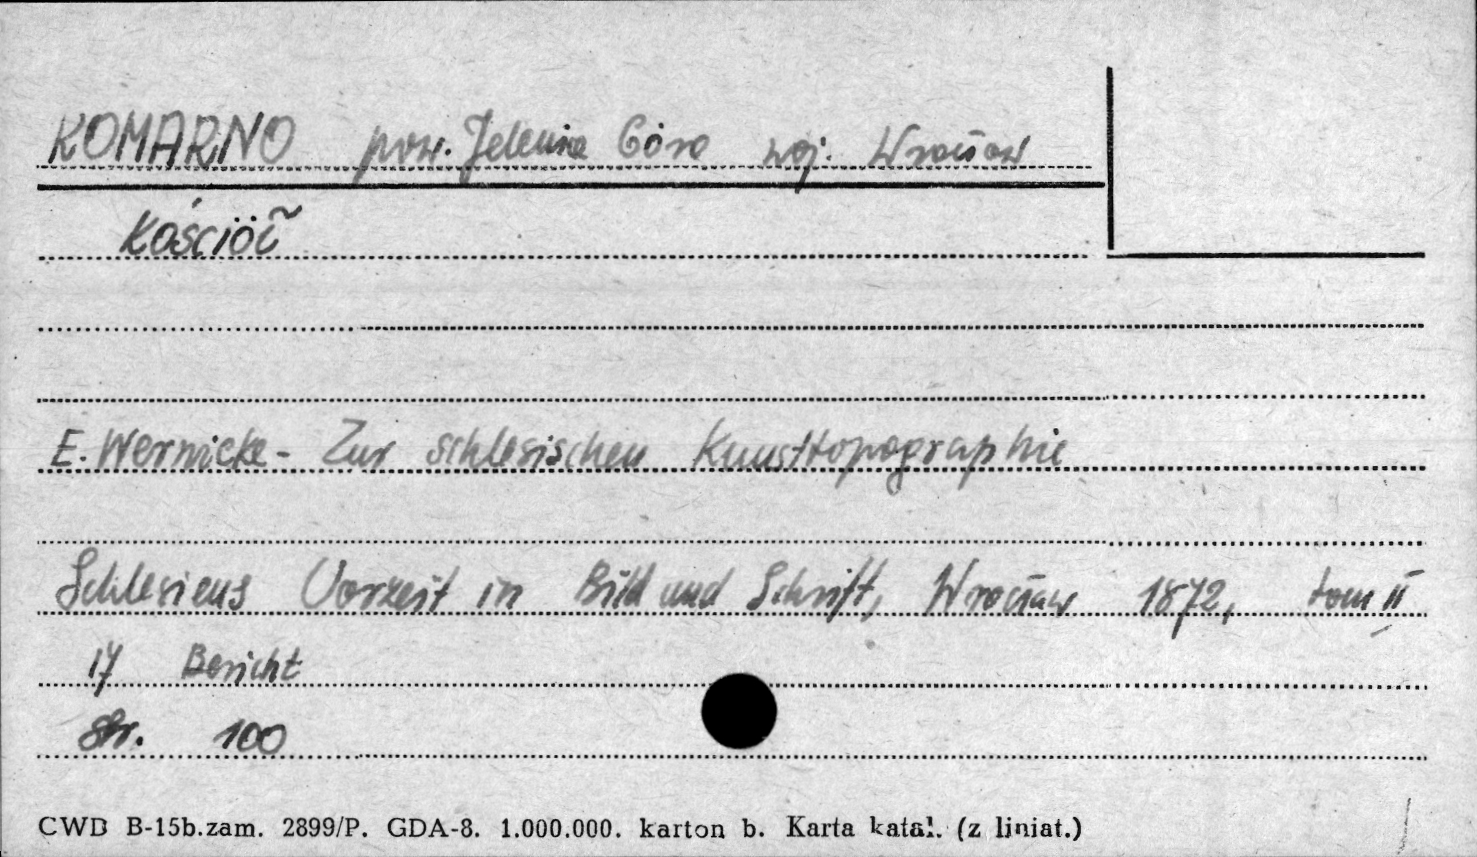 KOMARNO pow. Jelenia Góra woj. Wrocław
Kościół
E. Wernicke - Zur schlesischen Kunsttopographie
Schlesiens Vorzeit in Bild und Schrift, Wrocław 1872, tom II
17 Bericht
Str. 100
CWD B-15b.zam. 2899/P. GDA-8. 1.000.000. karton b. Karta katal. (z liniat.)